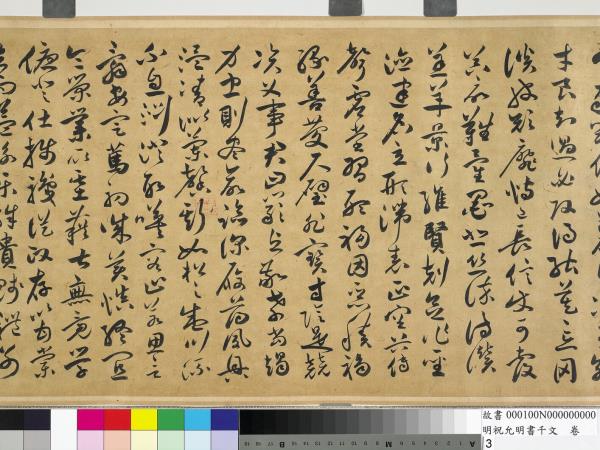 才良知過必改得能莫忘罔
談彼短靡恃己長信使可覆
器欲難量墨悲絲染詩讚
羔羊景行維賢剋念作聖
德建名立形端表正空谷傳
聲虛堂習聽禍因惡積福
緣善慶尺璧非寶寸陰是競
資父事君曰嚴與敬孝當竭
力忠則盡命臨深履薄夙興
溫凊似蘭斯馨如松之盛川流
不息淵澄取映容止若思言
辭安定篤初誠美慎終宜
令榮業所基籍甚無竟學
優登仕攝職從政存以甘棠
去而益詠樂殊貴賤禮別
故書 000100N000000000
明祝允明書千文 卷
3